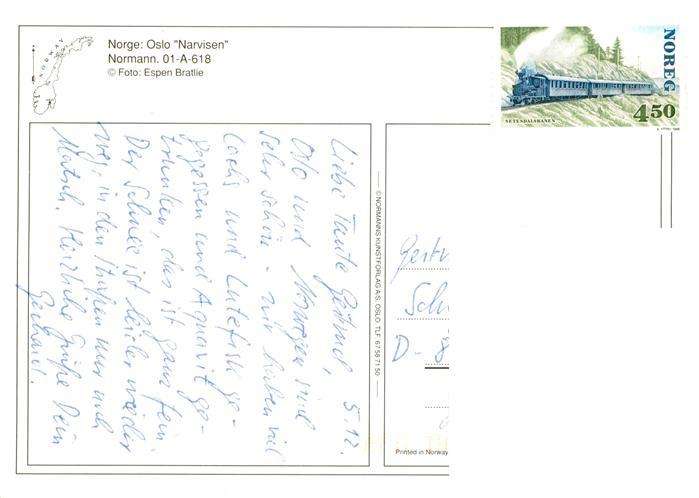 NORWAY
Norge: Oslo "Narvisen"
Normann. 01-A-618
© Foto: Espen Bratlie
NOREG
SETESDALSBANEN
4 50
5.12.
Liebe Tante Gertrud,
Oslo und Norwegen sind
sehr schön - wir haben viel
Lachs und Lutefisk ge-
gegessen und Aquavit ge-
trunken, das ist ganz fein
Der Schnee ist leider wieder
weg, in den Straßen nur noch
Matsch. Herzliche Grüße Dein
Gerhard.
© NORMANNS KUNSTFORLAG A.S. OSLO TLF. 67 56 71 50
Gertr
Sch
D-
Printed in Norway